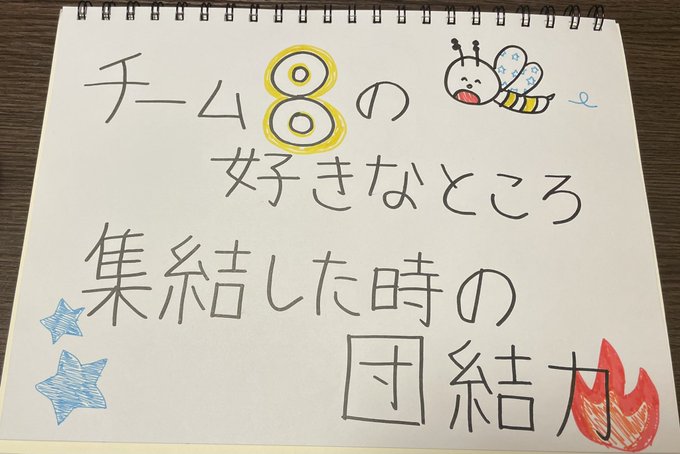 チーム8の
好きなところ
集結した時の
団結力